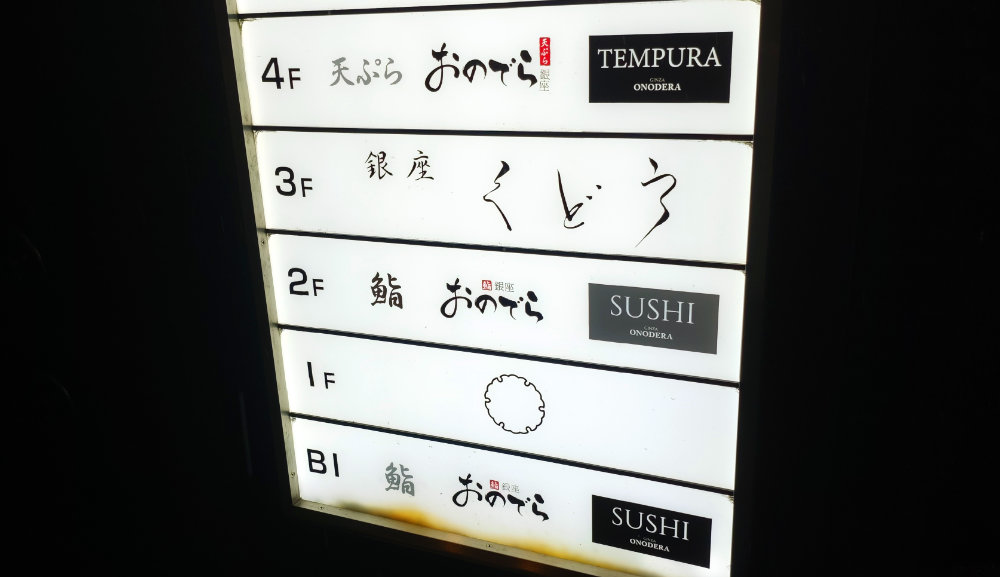 4F 天ぷら おのでら 天ぷら 銀座 TEMPURA
GINZA
ONODERA
3F 銀座 くどう
2F 鮨 おのでら 鮨 銀座 SUSHI
GINZA
ONODERA
1F
B1 鮨 おのでら 鮨 銀座 SUSHI
GINZA
ONODERA